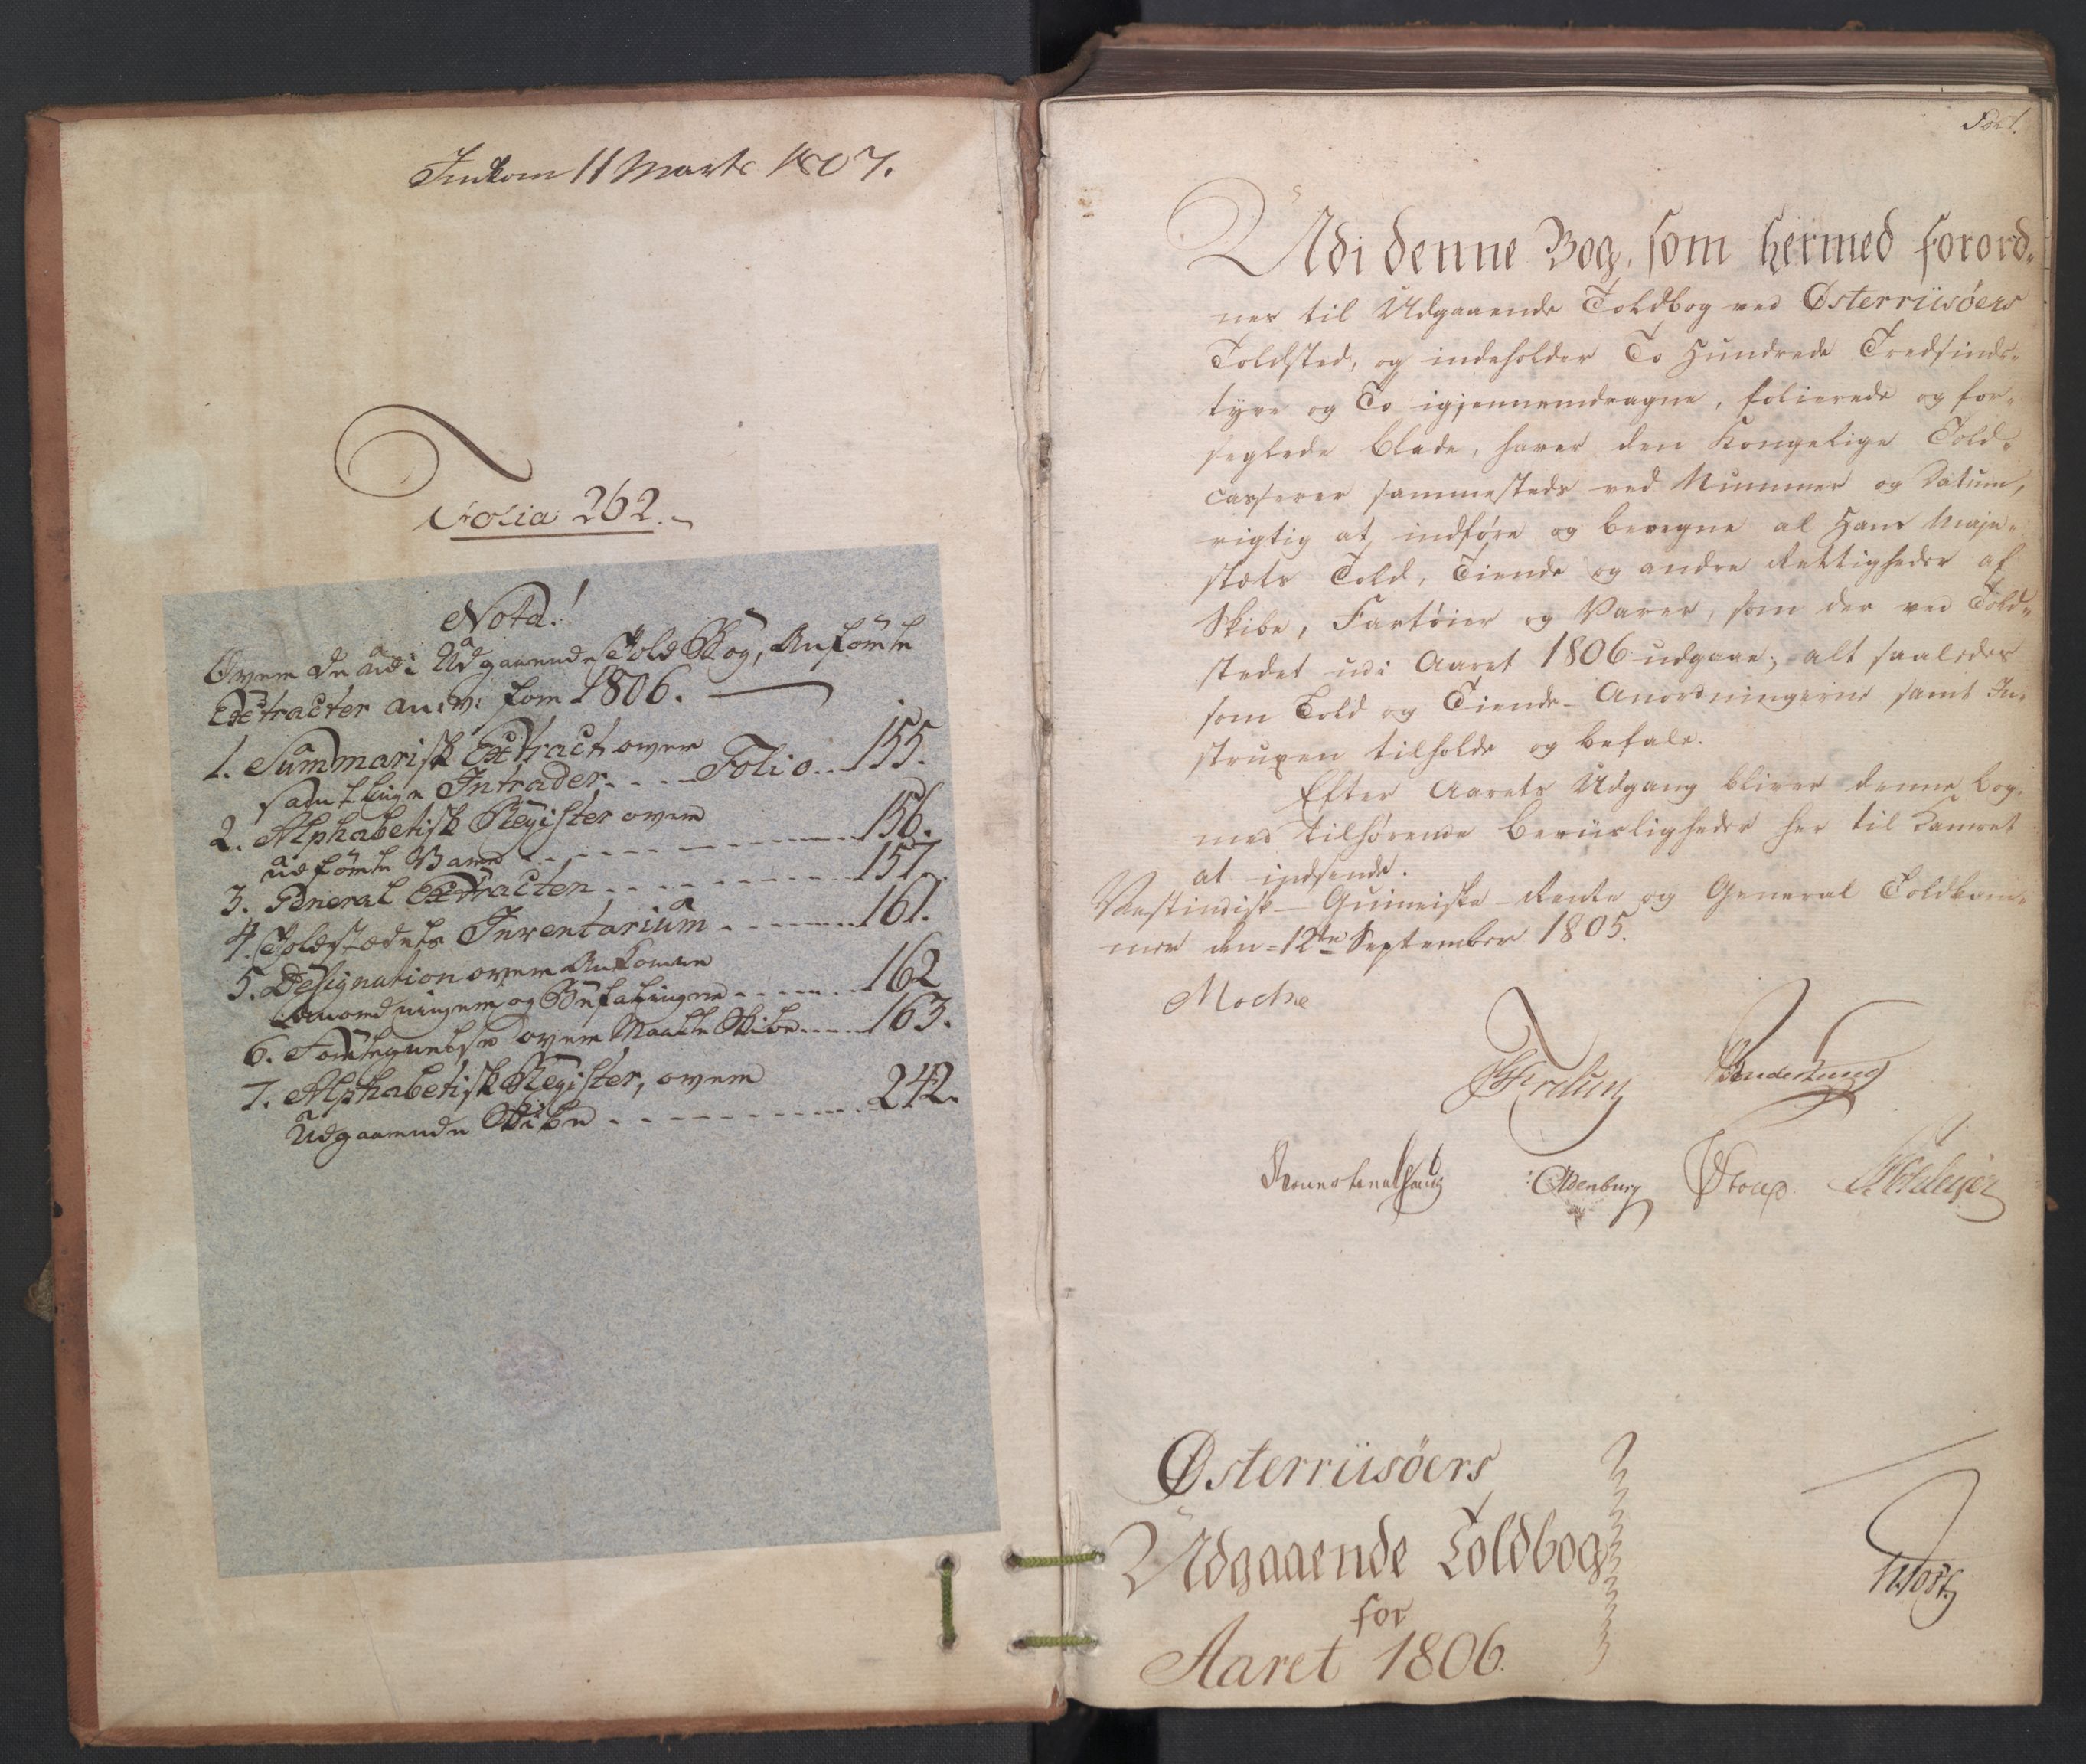 Indkom 11 Marts 1807.
Folia 262.
Nota!
Over de udi Udgaaende Told Bog, Anførte
Extracter an: v: for 1806.
1. Summarisk Extract over
samtlige Intrader. . . . Folio . . 155.
2. Alphabetisk Register over
udførte Varer . . . . . . . 156.
3. General Extracten . . . . . . . 157.
4. Toldstædets Inventarium . . . . . 161.
5. Designation over Ankomne
Anordninger og Befalinger . . . . . 162
6. Fortegnelse over Maalte Skibe . . . . 163.
7. Alphabetisk Register, over
Udgaaende Skibe . . . . . . . . 242.
Fol. 1.
Udi denne Bog, som hermed forord-
nes til Udgaaende Toldbog ved Østerriisøers
Toldsted, og indeholder To Hundrede Tredsinds-
tyve og To igjennemdragne, folierede og for-
seglede blade, haver den Kongelige Told-
casserer sammesteds ved Nummer og Datum,
rigtig at indføre og beregne al Hans Maje-
stæts Told, Tiende og andre Rettigheder af
Skibe, Fartøier og Varer, som der ved Told-
stedet udi Aaret 1806 udgaae; alt saaledes
som Told og Tiende-Anordningerne samt In-
struxen tilholde og befale.
Efter Aarets Udgang bliver denne bog
med tilhørende beviisligheder her til Kamret
at indsende.
Vestindisk-Guineiske Rente og General Toldkam-
mer den 12te September 1805.
Oldenburg
Østerriisøers
Udgaaende Toldbog
for
Aaret 1806.